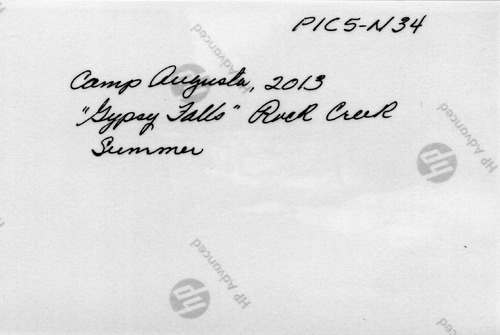 PIC5-N34
Camp Augusta, 2013
"Gypsy Falls" Rock Creek
Summer
HP Advanced
hp
HP Advanced
hp
HP Advanced
hp
HP Advanced